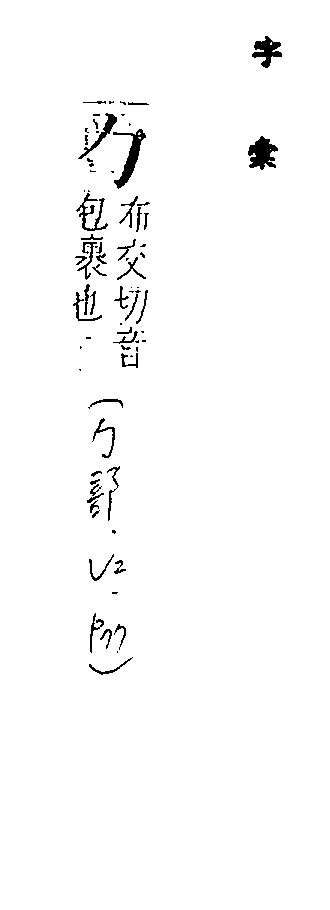 字彙
勹
布交切音
包裹也
(勹部·V2-P77)